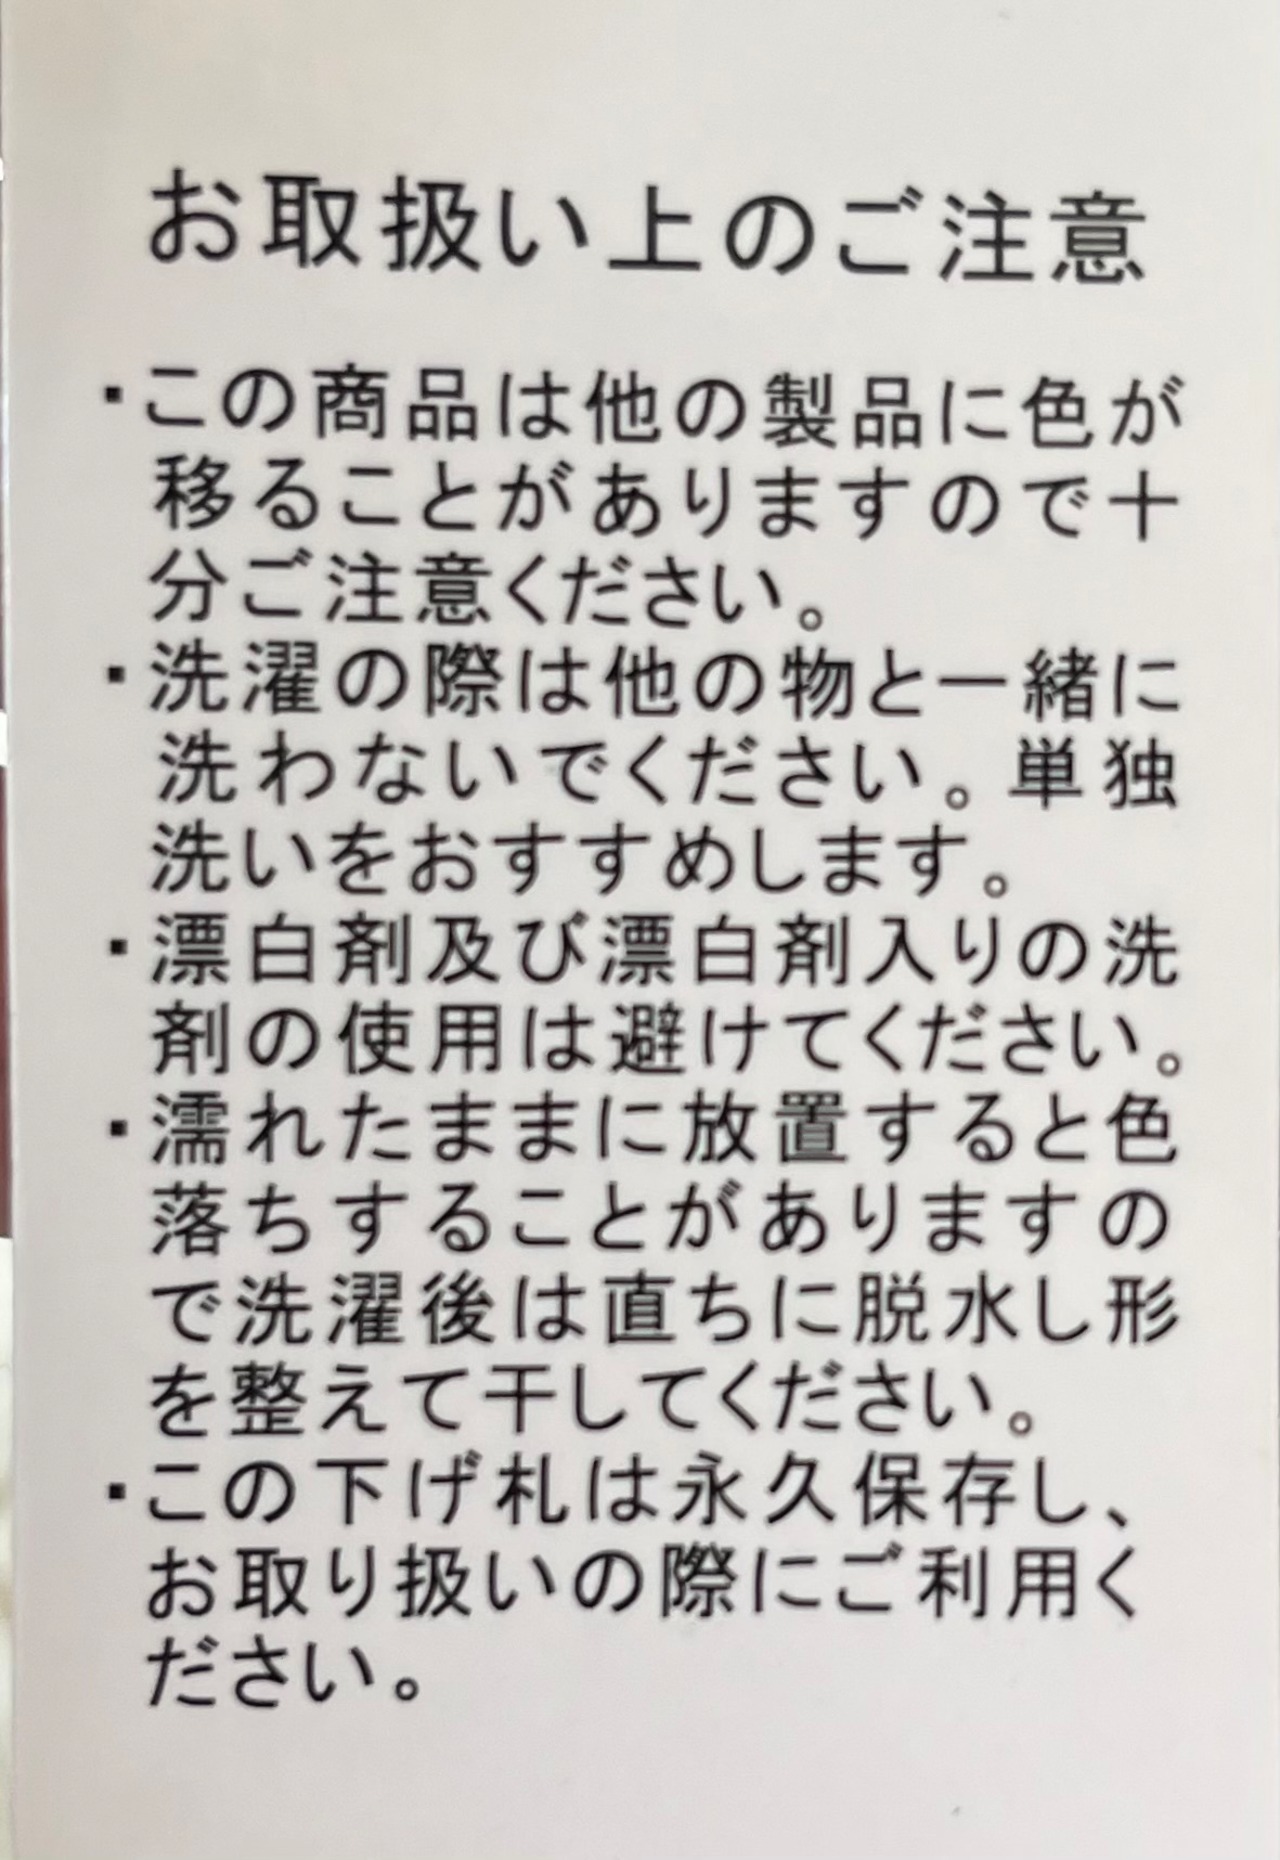 お取扱い上のご注意
・この商品は他の製品に色が
移ることがありますので十
分ご注意ください。
・洗濯の際は他の物と一緒に
洗わないでください。単独
洗いをおすすめします。
・漂白剤及び漂白剤入りの洗
剤の使用は避けてください。
・濡れたままに放置すると色
落ちすることがありますの
で洗濯後は直ちに脱水し形
を整えて干してください。
・この下げ札は永久保存し、
お取り扱いの際にご利用く
ださい。